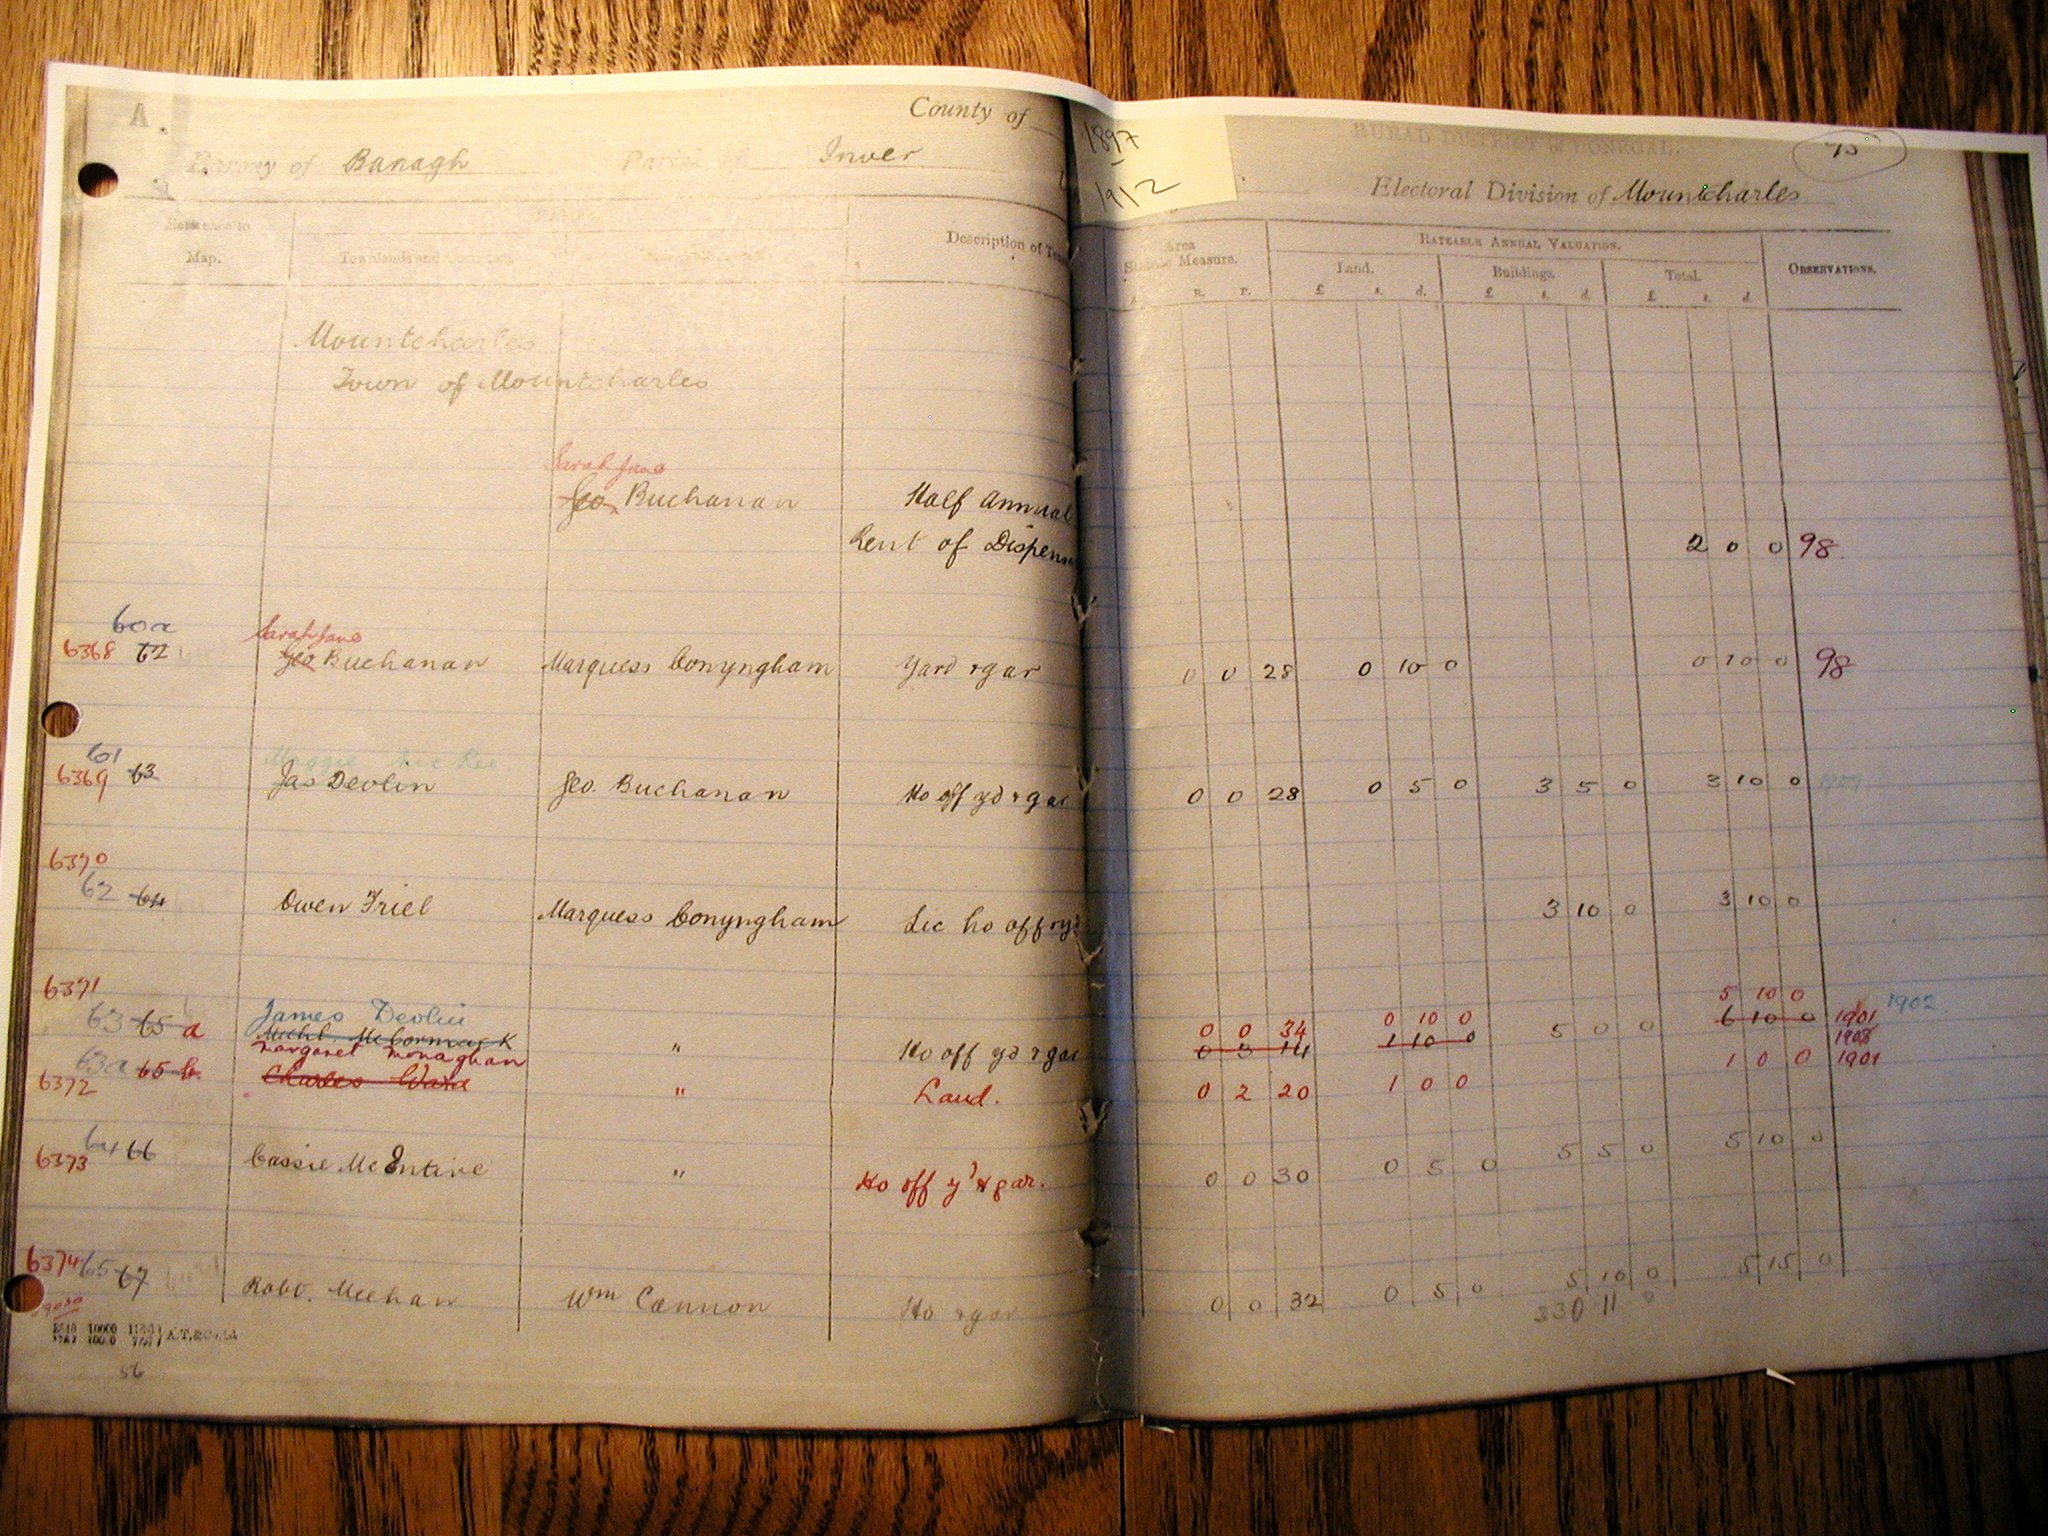 A.
County of
Barony of Banagh Parish of Inver
1897
1912
RURAL DISTRICT of DONEGAL.
75
Electoral Division of Mountcharles
Reference to
Map.
Townlands and Occupiers
Description of Tene
Area
Statute Measure.
A. R. P.
RATEABLE ANNUAL VALUATION.
Land. Buildings. Total.
£ s. d. £ s. d. £ s. d.
OBSERVATIONS.
Mountcharles
Town of Mountcharles
Sarah Jane
Geo Buchanan Half Annual
Rent of Dispens 2 0 0 98.
60a Sarah Jane
6368 62 Geo Buchanan Marquess Conyngham Yard & gar 0 0 28 0 10 0 0 10 0 98
61 Maggie McKee
6369 63 Jas Devlin Geo. Buchanan Ho off yd & gar 0 0 28 0 5 0 3 5 0 3 10 0 1909
6370
62 64 Owen Friel Marquess Conyngham Lic ho off & yd 3 10 0 3 10 0
6371
63 65 a James Devlin 0 0 34 0 10 0 5 10 0 1902
Michl. McCormack " Ho off yd & gar 0 3 14 1 10 0 5 0 0 6 10 0 1901
63a 65 b Margaret Monaghan 1908
6372 Charles Ward " Land. 0 2 20 1 0 0 1 0 0 1901
64 66
6373 Cassie McEntire " Ho off yd & gar. 0 0 30 0 5 0 5 5 0 5 10 0
6374 65 67 Robt. Meehan Wm Cannon Ho & gar 0 0 32 0 5 0 5 10 0 5 15 0
330 11 0
A.T.&Co.Ld
56